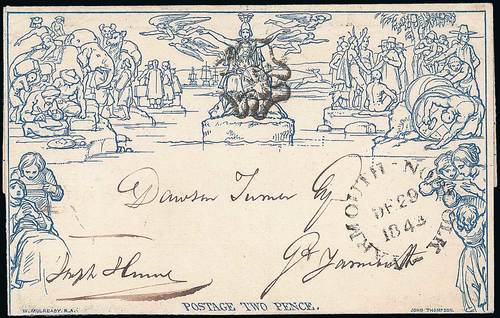 Dawson Turner Esq
YARMOUTH-NORFOLK
DE 29
1843
Gt Yarmouth
Joseph Hume
POSTAGE TWO PENCE.
W. MULREADY. R.A.
JOHN THOMPSON.